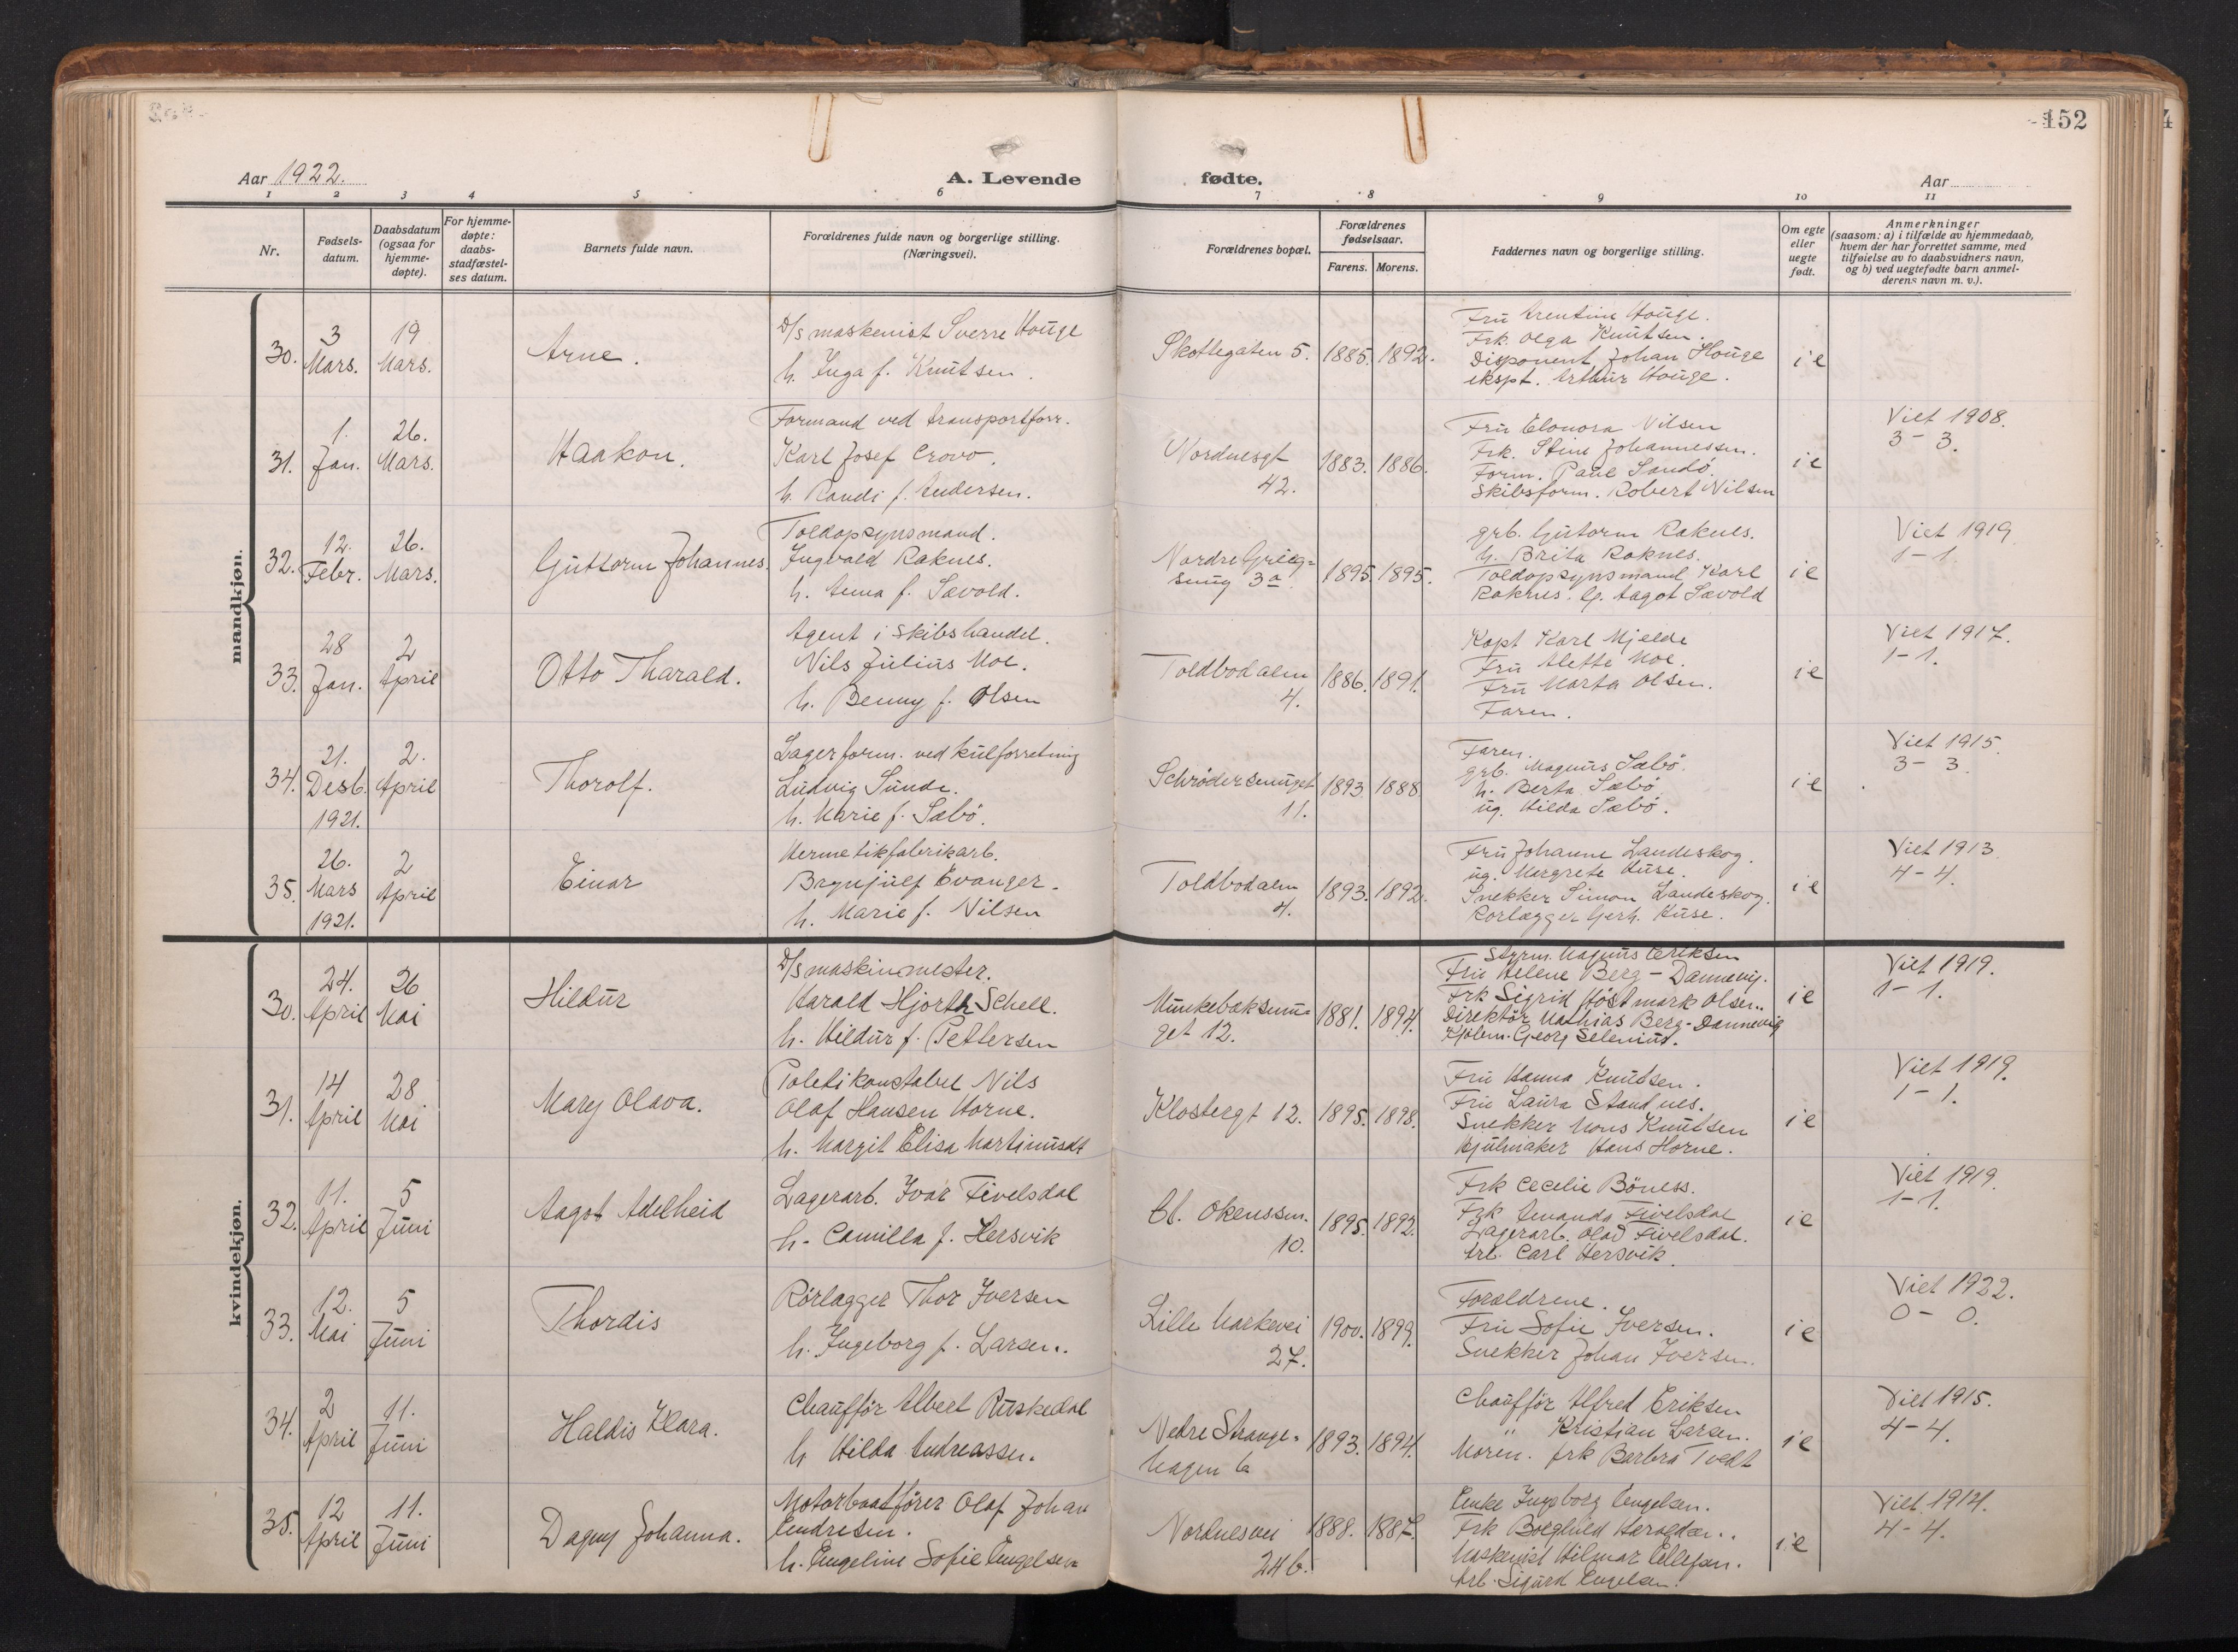 152
Aar 1922.
A. Levende
fødte.
Aar
1 2 3 4 5 6 7 8 9 10 11
Nr.
Fødsels-
datum.
Daabsdatum
(ogsaa for
hjemme-
døpte).
For hjemme-
døpte:
daabs-
stadfæstel-
ses datum.
Barnets fulde navn.
Forældrenes fulde navn og borgerlige stilling.
(Næringsvei).
Forældrenes bopæl.
Forældrenes
fødselsaar.
Farens. Morens.
Faddernes navn og borgerlige stilling.
Om egte
eller
uegte
født.
Anmerkninger
(saasom: a) i tilfælde av hjemmedaab,
hvem der har forrettet samme, med
tilføielse av to daabsvidners navn,
og b) ved uegtefødte barn anmel-
derens navn m. v.).
mandkjøn.
30.
3
Mars.
19
Mars.
Arne.
D/s maskenist Sverre Houge
h. Inga f. Knutsen.
Skottegaten 5.
1885. 1892.
Fru Arentine Houge.
Frk. Olga Knutsen.
Disponent Johan Houge
ekspt. Arthur Houge.
i e
31.
1.
Jan.
26.
Mars.
Haakon.
Formand ved transportforr.
Karl Josef Crovo.
h. Randi f. Andersen.
Nordnesgt
42.
1883. 1886.
Fru Elonora Nilsen
Frk. Stine Johannessen.
Form. Paul Sandö.
Skibsform. Robert Nilsen
i e
Viet 1908.
3 - 3.
32.
12.
Febr.
26.
Mars.
Guttorm Johannes.
Toldopsynsmand.
Ingvald Raknes.
h. Anna f. Sævold.
Nordre Grieg=
smug 3a
1895. 1895.
grb. Gutorm Raknes.
h. Brita Raknes.
Toldopsynsmand Karl
Raknes. Ug. Aagot Sævold
i e
Viet 1919
1 - 1.
33.
28
Jan.
2
April
Otto Tharald.
Agent i skibshandel.
Nils Julius Moe.
h. Benny f. Olsen
Toldbodalm
4.
1886. 1891.
Kapt Karl Mjelde
Fru Alette Moe.
Fru Marta Olsen.
Faren.
i e
Viet 1917.
1 - 1.
34.
21.
Desb.
1921.
2.
April
Thorolf.
Lagerform. ved kulforretning
Ludvig Sunde.
h. Marie f. Sæbö.
Schrödersmuget
11.
1893 1888.
Faren.
grb. Magnus Sæbö.
h. Berta Sæbö
ug. Hilda Sæbö.
i e
Viet 1915.
3 - 3.
35.
26.
Mars
1921.
2
April
Einar
Hermetikfabrikarb.
Brynjulf Evanger.
h. Marie f. Nilsen
Toldbodalm
4.
1893. 1892.
Fru Johanne Landeskog.
ug. Margrete Huse.
Snekker Simon Landeskog.
Rörlægger Gerh. Huse.
i e
Viet 1913.
4 - 4.
kvindekjøn.
30.
24.
April
26
Mai
Hildur
D/s maskinmester.
Harald Hjorth Schell.
h. Hildur f. Pettersen
Munkebeksmu=
get 12.
1881. 1894.
Styrm. Magnus Eriksen
Fru Helene Berg-Dannevig.
Frk Sigrid Höstmark Olsen.
Direktör Mathias Berg-Dannevig
Georg Selenius.
i e
Viet 1919.
1 - 1.
31.
14
April
28
Mai
Mary Olava.
Politikonstabel Nils
Olaf Hansen Horne.
h. Margit Elisa Martinusdt
Klostergt 12.
1895. 1898.
Fru Hanna Knutsen.
Fru Laura Standnes.
Snekker Mons Knutsen
Hjulmaker Hans Horne.
i e
Viet 1919.
1 - 1.
32.
11.
April
5
Juni
Aagot Adelheid
Lagerarb. Ivar Fivelsdal
h. Camilla f. Hersvik
Cl. Okenssm.
10.
1895. 1892.
Frk Cecelie Böness.
Frk Amanda Fivelsdal
Lagerarb. Olav Fivelsdal.
Arb. Carl Hersvik.
i e
Viet 1919.
1 - 1.
33.
12.
Mai
5
Juni
Thordis
Rörlægger Thor Iversen
h. Ingeborg f. Larsen.
Lille Markevei
27.
1900. 1899.
Forældrene.
Fru Sofie Iversen.
Snekker Johan Iversen.
i e
Viet 1922.
0 - 0.
34.
2
April
11.
Juni
Haldis Klara.
Chaufför Albert Ruskedal
h Hilda Andreassen.
Nedre Strange-
hagen 6
1893. 1894.
Chaufför Alfred Eriksen
" Kristian Larsen.
Moren. frk Barbra Tvedt
i e
Viet 1915.
4 - 4.
35.
12
April
11.
Juni
Dagny Johanna.
Motorbaatförer Olaf Johan
Endresen.
h. Engeline Sofie Engelsen
Nordnesvei
24 b.
1888. 1887.
Enke Ingeborg Engelsen.
Frk Borghild
Maskenist Hilmar Ellefsen.
Arb. Sigurd Engelsen.
i e
Viet 1914.
4 - 4.